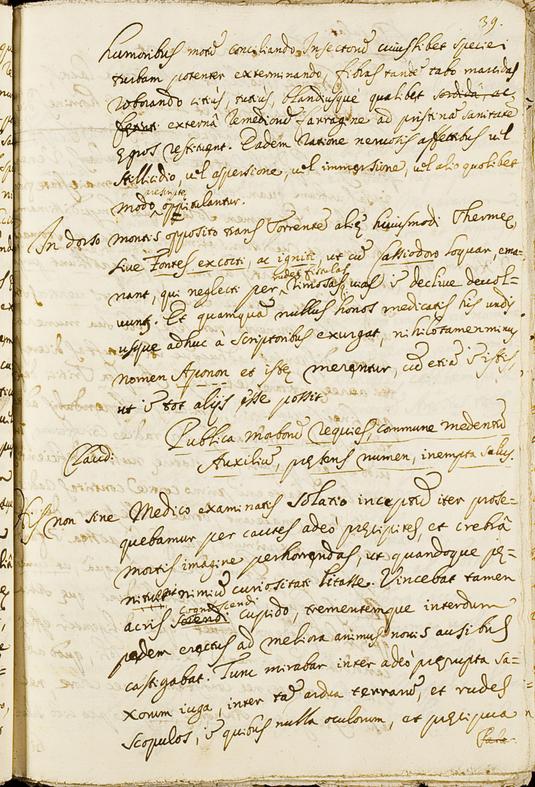 39.
humoribus motū conciliando, Insectorū cuiuslibet speciei
turbam potenter exterminando, fibras tandē tabo marcidas
roborando citiùs, tutiùs, blandiusquè qualibet sordida ac
externā remediorū farragine ad pristinā sanitatē
Egros restituunt. Eadem ratione nervosis affectibus vel
stillicidio, vel aspersione, vel immersione, vel alio quolibet
modo opitulantur.
In dorso montis opposito trans Torrentē alię huiusmodi Thermę
sive Fontes excocti ac igniti, ut cū Cassiodoro loquar, ema=
nant, qui neglecti per limosas vias ī declive devol=
vunt. Et quamquā nullus honos medicatis his undis
usque adhuc a Scriptoribus exurgat, nihilotamenminus
nomen Aponon et istę merentur, cū etiā ī istis,
ut ī tot alijs, esse possit
Publica morborū requies, commune medentū
Claud: Auxiliū, pręsens numen, inempta salus.
His non sine Medico examinatis solatio inceptū iter prose=
quebamur per cautes adeò pręcipites, et crebrā
mortis imagine perhorrendas, ut quandoque pę=
nituerit nimiū curiositati litasse. Vincebat tamen
acris scandendi cupido, trementemque interdum
pedem erectus ad meliora animus novis ausibus
castigabat. Tunc mirabar inter adeò pręrupta sa=
xorum iuga, inter tā ardua terrarū, et rudes
scopulos, ī quibus nulla oculorum, et pręcipua